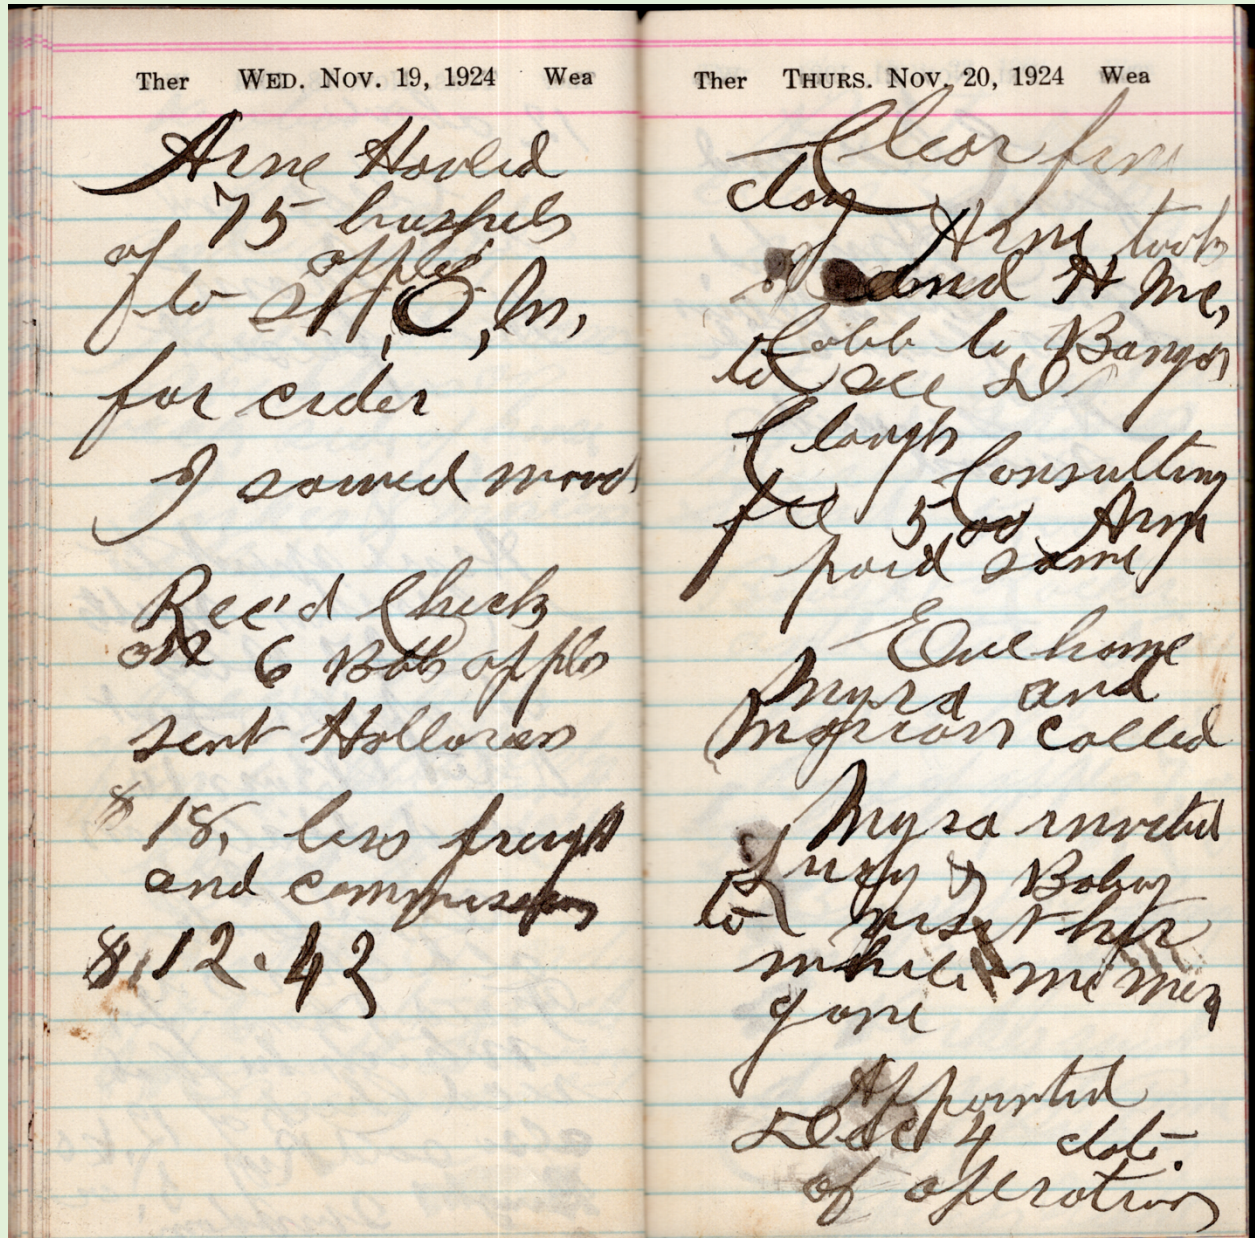 Ther WED. NOV. 19, 1924 Wea
Arne Hauled
75 bushels
of apples
to St, O, M,
for cider
I sawed wood
Rec'd Check
on 6 Bbls apples
sent Holloway
$18, less freight
and commission
$12.42
Ther THURS. NOV. 20, 1924 Wea
Clear fine
day
Arne took
and H Mc,
Cobb to Bangor
to see D
Clough
Consulting
fee 5,00 Arne
paid same
Eve home
Myra and
Marion called
Myra invited
Lucy & Bobby
to visit her
while we were
gone
Appointed
Dec 4 date
of operation